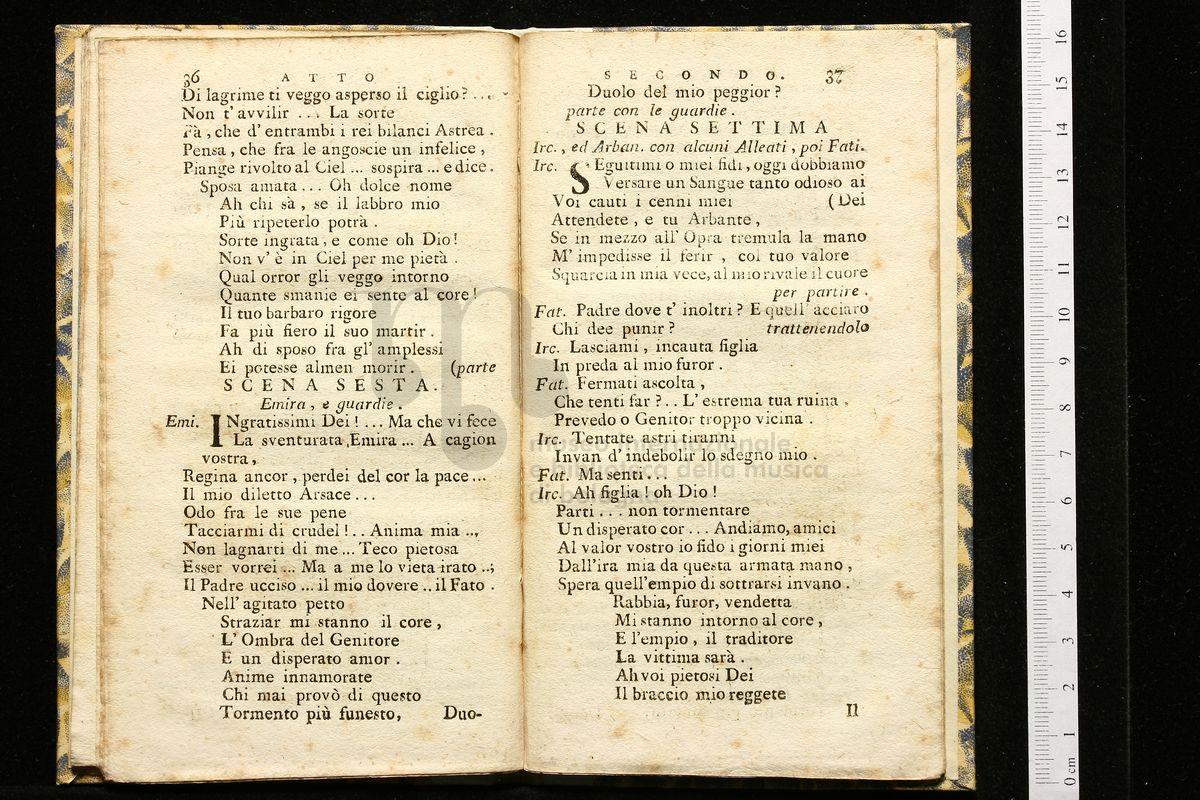 36 ATTO
Di lagrime ti veggo asperso il ciglio? ...
Non t' avvilir ... La sorte
Fà , che d' entrambi i rei bilanci Astrea .
Pensa , che fra le angoscie un infelice ,
Piange rivolto al Ciel ... sospira ... e dice .
Sposa amata ... Oh dolce nome
Ah chi sà , se il labbro mio
Più ripeterlo potrà .
Sorte ingrata , e come oh Dio !
Non v' è in Ciel per me pietà .
Qual orror gli veggo intorno
Quante smanie ei sente al core !
Il tuo barbaro rigore
Fa più fiero il suo martir .
Ah di sposo fra gl' amplessi
Ei potesse almen morir . (parte
SCENA SESTA.
Emira , e guardie .
Emi. INgratissimi Dei ! ... Ma che vi fece
La sventurata ,Emira ... A cagion
vostra ,
Regina ancor , perdei del cor la pace ...
Il mio diletto Arsace ...
Odo fra le sue pene
Tacciarmi di crudel ! .. Anima mia ..,
Non lagnarti di me ... Teco pietosa
Esser vorrei ... Ma a me lo vieta irato ..;
Il Padre ucciso ... il mio dovere .. il Fato .
Nell' agitato petto
Straziar mi stanno il core ,
L' Ombra del Genitore
E un disperato amor .
Anime innamorate
Chi mai provò di questo
Tormento più funesto, Duo-
SECONDO. 37
Duolo del mio peggior ?
parte con le guardie .
SCENA SETTIMA
Irc. , ed Arban. con alcuni Alleati , poi Fati.
Irc. SEguitimi o miei fidi , oggi dobbiamo
Versare un Sangue tanto odioso ai
Voi cauti i cenni miei (Dei
Attendete , e tu Arbante ,
Se in mezzo all' Opra tremula la mano
M' impedisse il ferir , col tuo valore
Squarcia in mia vece, al mio rivale il cuore
per partire .
Fat. Padre dove t' inoltri ? E quell' acciaro
Chi dee punir ? trattenendolo
Irc. Lasciami , incauta figlia
In preda al mio furor .
Fat. Fermati ascolta ,
Che tenti far ? .. L' estrema tua ruina ,
Prevedo o Genitor troppo vicina .
Irc. Tentate astri tiranni
Invan d' indebolir lo sdegno mio .
Fat. Ma senti ...
Irc. Ah figlia ! oh Dio !
Parti ... non tormentare
Un disperato cor ... Andiamo, amici
Al valor vostro io fido i giorni miei
Dall'ira mia da questa armata mano ,
Spera quell'empio di sottrarsi invano .
Rabbia, furor, vendetta
Mi stanno intorno al core ,
E l'empio , il traditore
La vittima sarà .
Ah voi pietosi Dei
Il braccio mio reggete
Il
museo internazionale
e biblioteca della musica
di bologna
0 cm 1 2 3 4 5 6 7 8 9 10 11 12 13 14 15 16